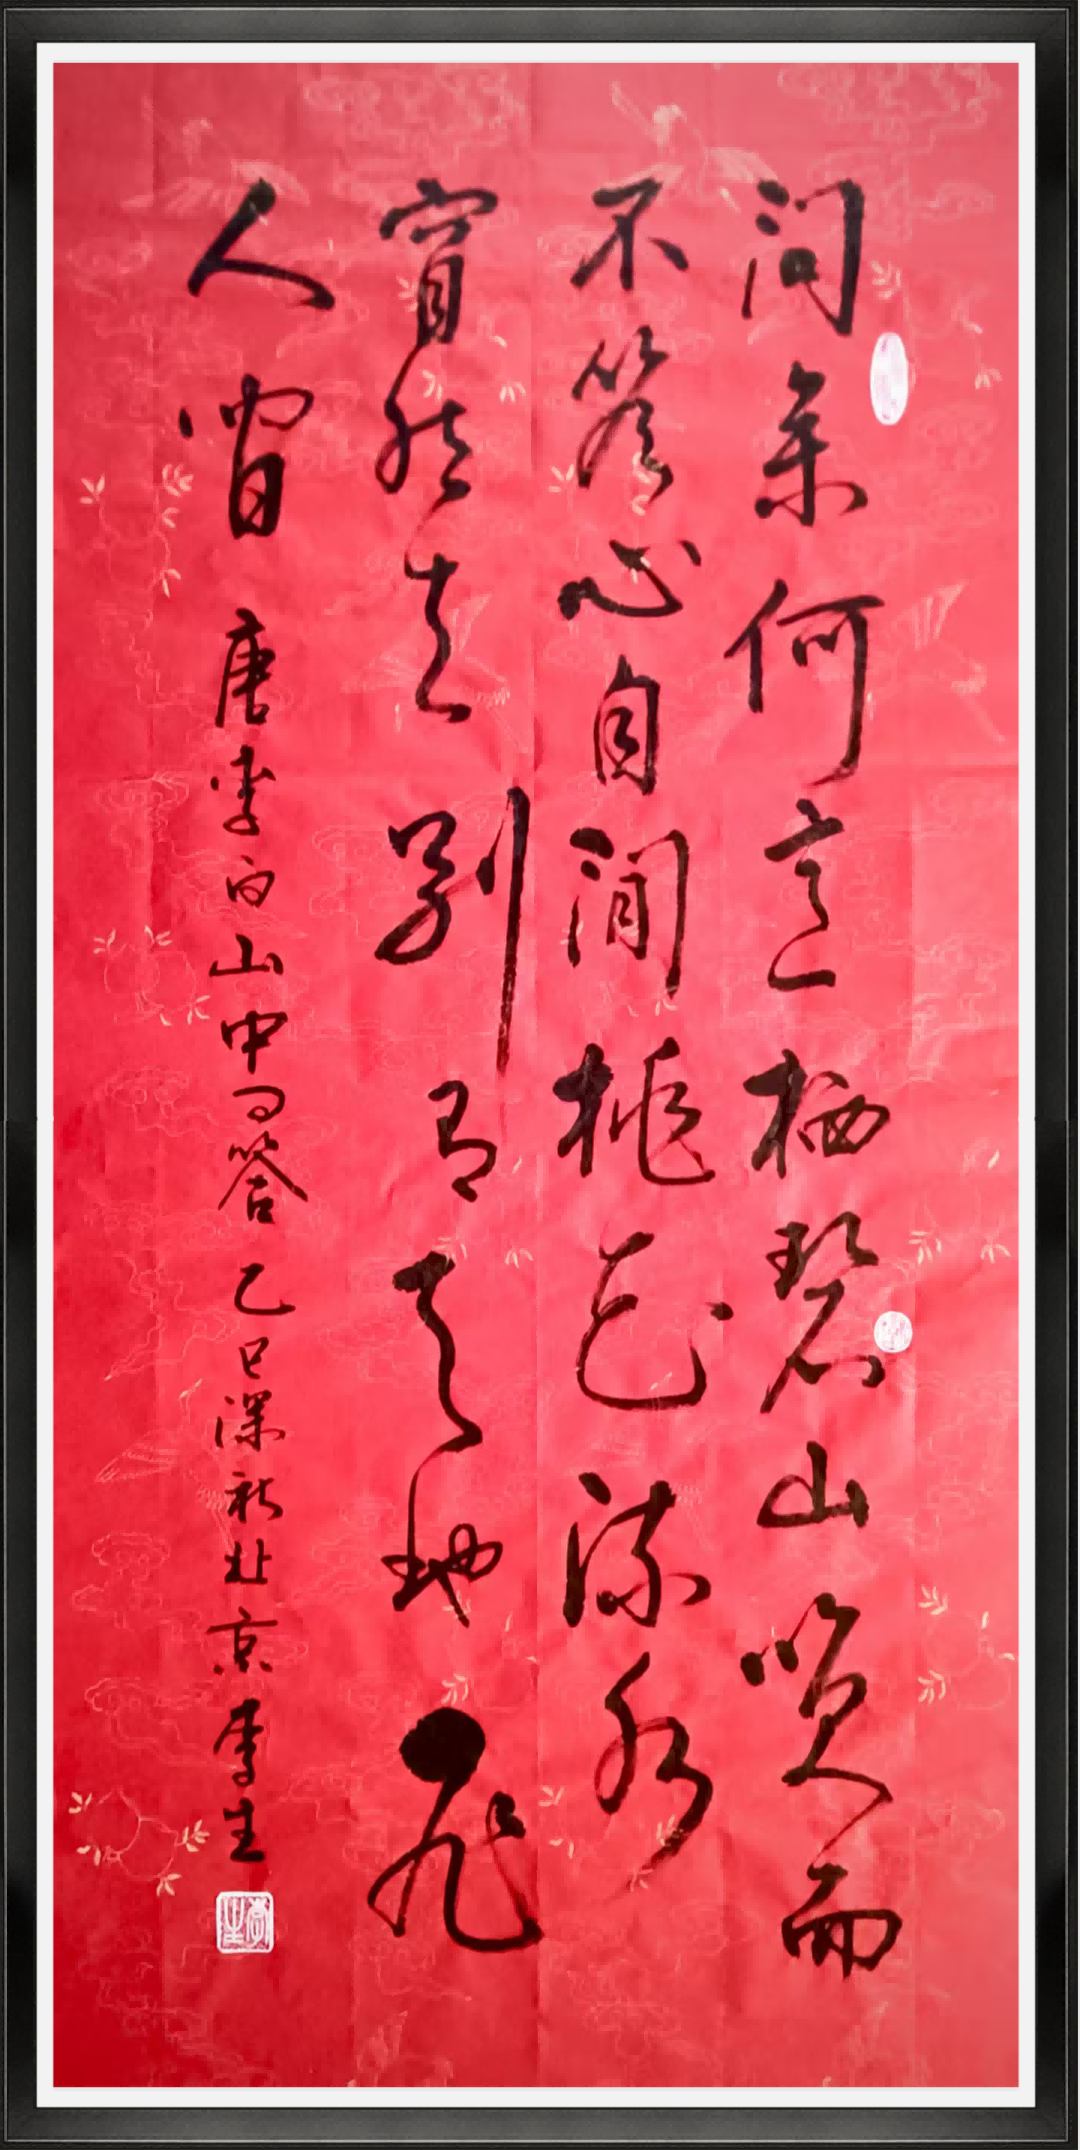 问余何意栖碧山笑而
不答心自閒桃花流水
窅然去别有天地非
人間 唐李白山中问答 乙巳深秋北京李生
李生